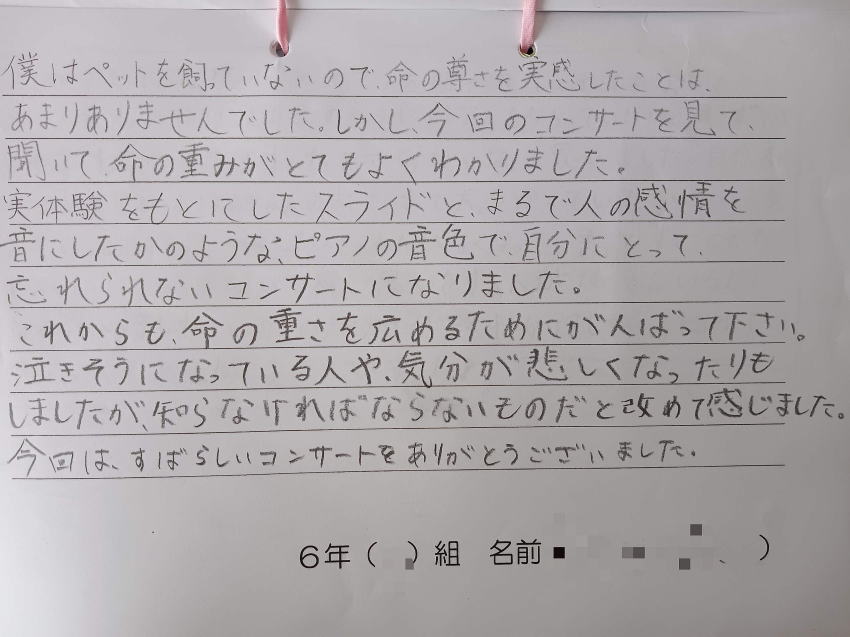 僕はペットを飼っていないので、命の尊さを実感したことは、
あまりありませんでした。しかし、今回のコンサートを見て、
聞いて、命の重みがとてもよくわかりました。
実体験をもとにしたスライドと、まるで人の感情を
音にしたかのような、ピアノの音色で、自分にとって、
忘れられないコンサートになりました。
これからも、命の重さを広めるためにがんばって下さい。
泣きそうになっている人や、気分が悲しくなったりも
しましたが、知らなければならないものだと改めて感じました。
今回は、すばらしいコンサートをありがとうございました。
6年( )組 名前 )